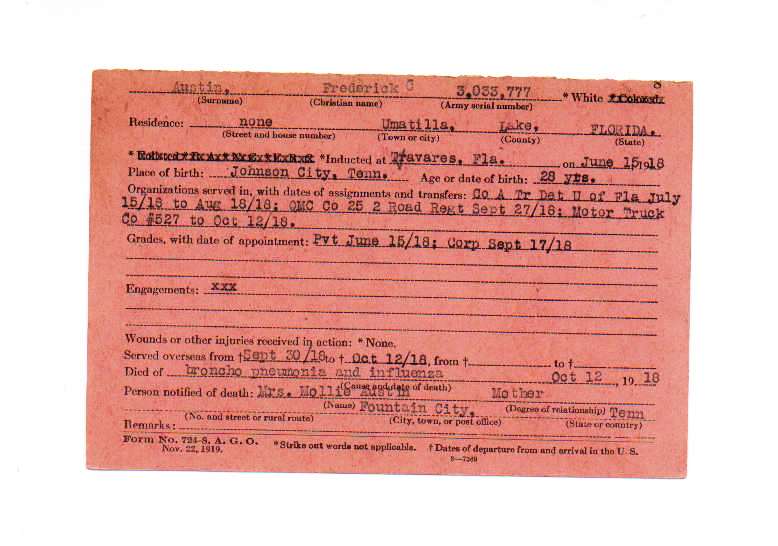 Austin, Frederick C 3,033,777 * White * Colored.
(Surname) (Christian name) (Army serial number)
Residence: none Umatilla, Lake, FLORIDA.
(Street and house number) (Town or city) (County) (State)
* *Inducted at Travares, Fla. on June 15, 1918
Place of birth: Johnson City, Tenn. Age or date of birth: 28 yrs.
Organizations served in, with dates of assignments and transfers: Co A Tr Det U of Fla July
15/18 to Aug 18/18; QMC Co 25 2 Road Regt Sept 27/18; Motor Truck
Co #527 to Oct 12/18.
Grades, with date of appointment: Pvt June 15/18; Corp Sept 17/18
Engagements: xxx
Wounds or other injuries received in action: * None.
Served overseas from † Sept 30/18 to † Oct 12/18, from † to †
Died of broncho pneumonia and influenza Oct 12, 19 18
(Cause and date of death)
Person notified of death: Mrs. Mollie Austin Mother
(Name) (Degree of relationship)
Fountain City, Tenn
(No. and street or rural route) (City, town, or post office) (State or country)
Remarks:
Form No. 724-8. A. G. O. *Strike out words not applicable. † Dates of departure from and arrival in the U. S.
Nov. 22, 1919. 3—7369